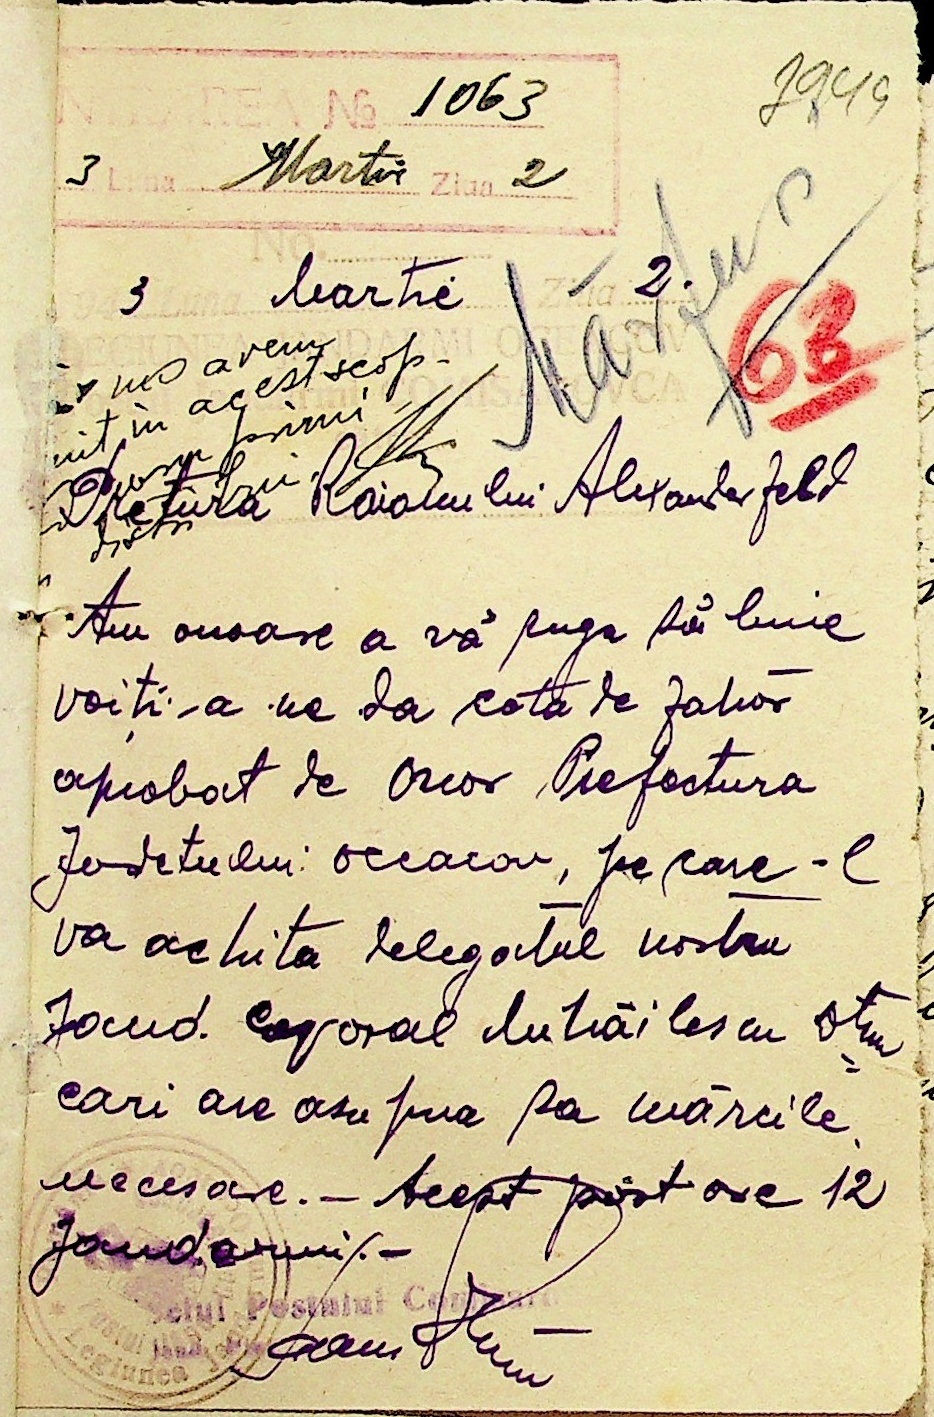 No 1063
7949
3 Luna Martie Ziua 2
No.
3 Martie 2.
63
nu avem
in acest scop.
primi
Pretura Raionului Alexanderfeld
Am onoare a vă ruga să bine
voiți-a ne da cota de zahăr
aprobat de Onor Prefectura
Județului Oceacov, pe care-l
va achita delegatul nostru
Jand. Caporal Mihăilescu Stan
cari are asupra sa mărcile
necesare. — Acest post are 12
Jandarmi. —
Postului
Legiunea